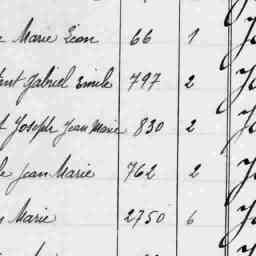 Marie Léon 66 1
Gabriel Emile 797 2
Joseph Jean Marie 830 2
Jean Marie 762 2
Marie 2750 6